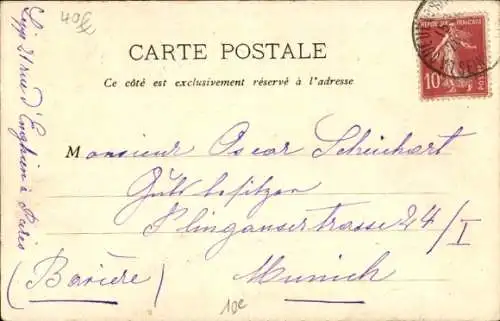 40f
CARTE POSTALE
Ce côté est exclusivement réservé à l'adresse
REPUBLIQUE FRANÇAISE
10
POSTES
Monsieur Oscar Scheichart
Gutsbesitzer
Plinganserstrasse 24/I
(Bavière) Munich
10e
21 rue d'Enghien à Paris